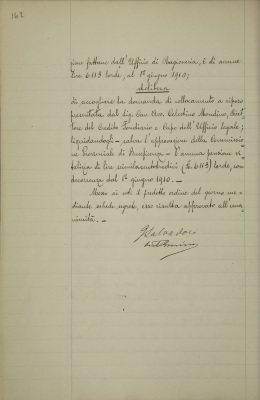 162
zione fattane dall'Ufficio di Ragioneria, è di annue
Lire 6113 lorde, al 1º giugno 1910;
delibera
di accogliere la domanda di collocamento a riposo
presentata dal Sig. Cav. Avv. Celestino
del Credito Fondiario e Capo dell'Ufficio legale;
liquidandogli – salva l'approvazione della Commissio
ne Provinciale di Beneficenza – l'annua pensione vi
talizia di lire (Lire 6113) lorde, con
decorrenza dal 1º giugno 1910. –
Messo ai voti il predetto ordine del giorno me
diante schede segrete, esso risulta approvato all'una
nimità. –